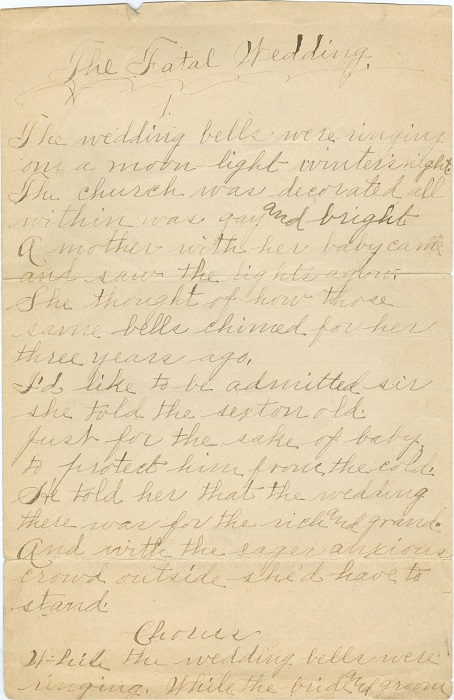 The Fatal Wedding.
1.
The wedding bells were ringing
on a moon light winter's night
The church was decorated all
within was gay and bright
A mother with her baby came
and saw the lights aglow.
She thought of how those
same bells chimed for her
three years ago.
I'd like to be admitted sir
she told the sexton old.
Just for the sake of baby
to protect him from the cold.
He told her that the wedding
there was for the rich and grand.
And with the eager anxious
crowd outside she'd have to
stand.
Chorus
While the wedding bells were
ringing. While the bride and groom